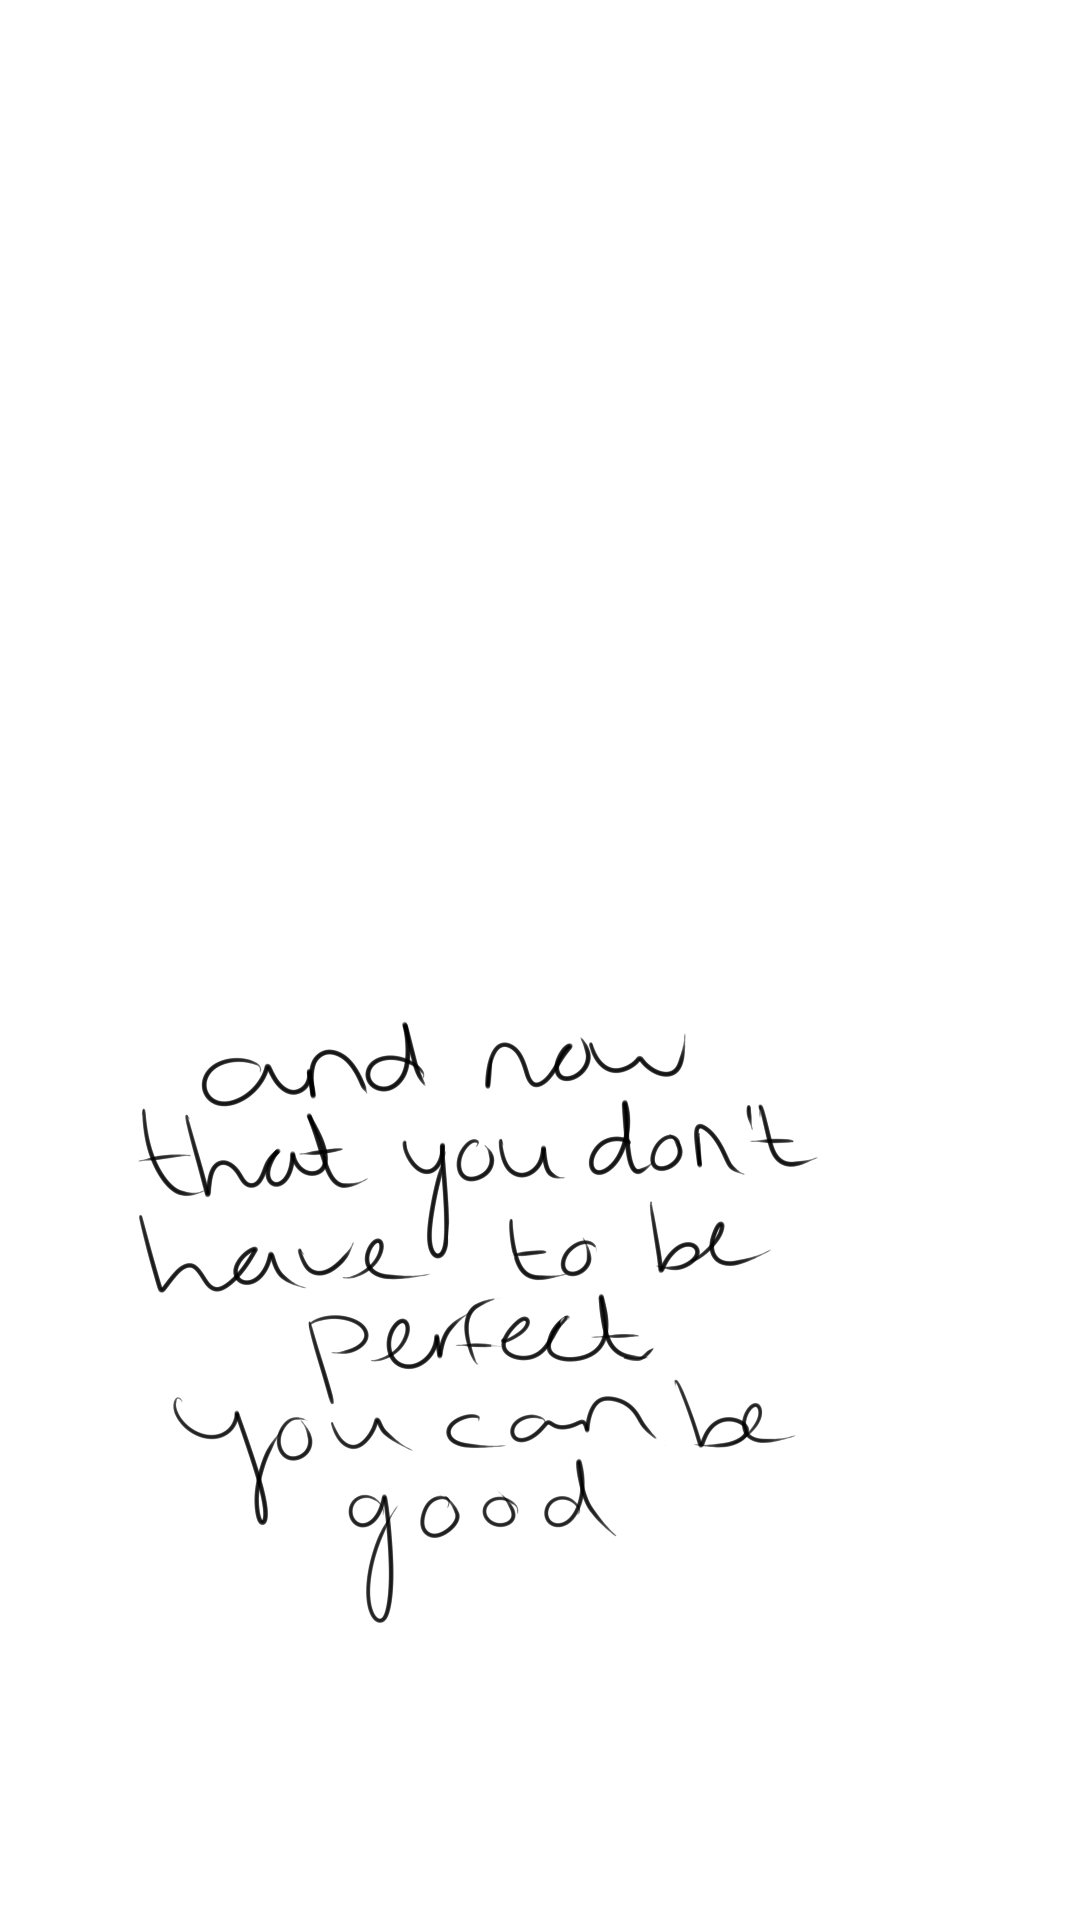 and now
that you don't
have to be
perfect
you can be
good